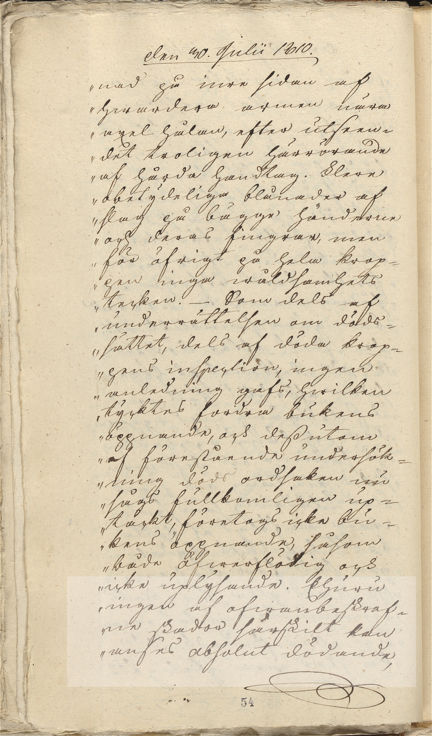 den 30. Julii 1810.
"nad på inre sidan af
"hvardera armen nära
"axel hålan, efter utseen-
"det troligen härrörande
"af hårda handtag. Flere
"obetydeliga blånader af
"slag på bägge händerne
"och deras fingrar, men
"för öfrigt på hela krop-
"pen inga wåldsamhets
"tecken. — Som dels af
"underrättelsen om döds-
"sättet, dels af döda krop-
"pens inspection, ingen
"anledning gafs, hwilken
"tycktes fordra bukens
"öppnande, och dessutom
"af förestående undersök-
"ning döds ordsaken nu
"sågs fullkomligen up-
"täckt, företogs icke bu-
"kens öppnande, såsom
"både öfwerflödig och
"icke uplysande. Ehuru
"ingen af ofwanbeskref-
"ne skador särskilt kan
"anses absolut dödande,
54